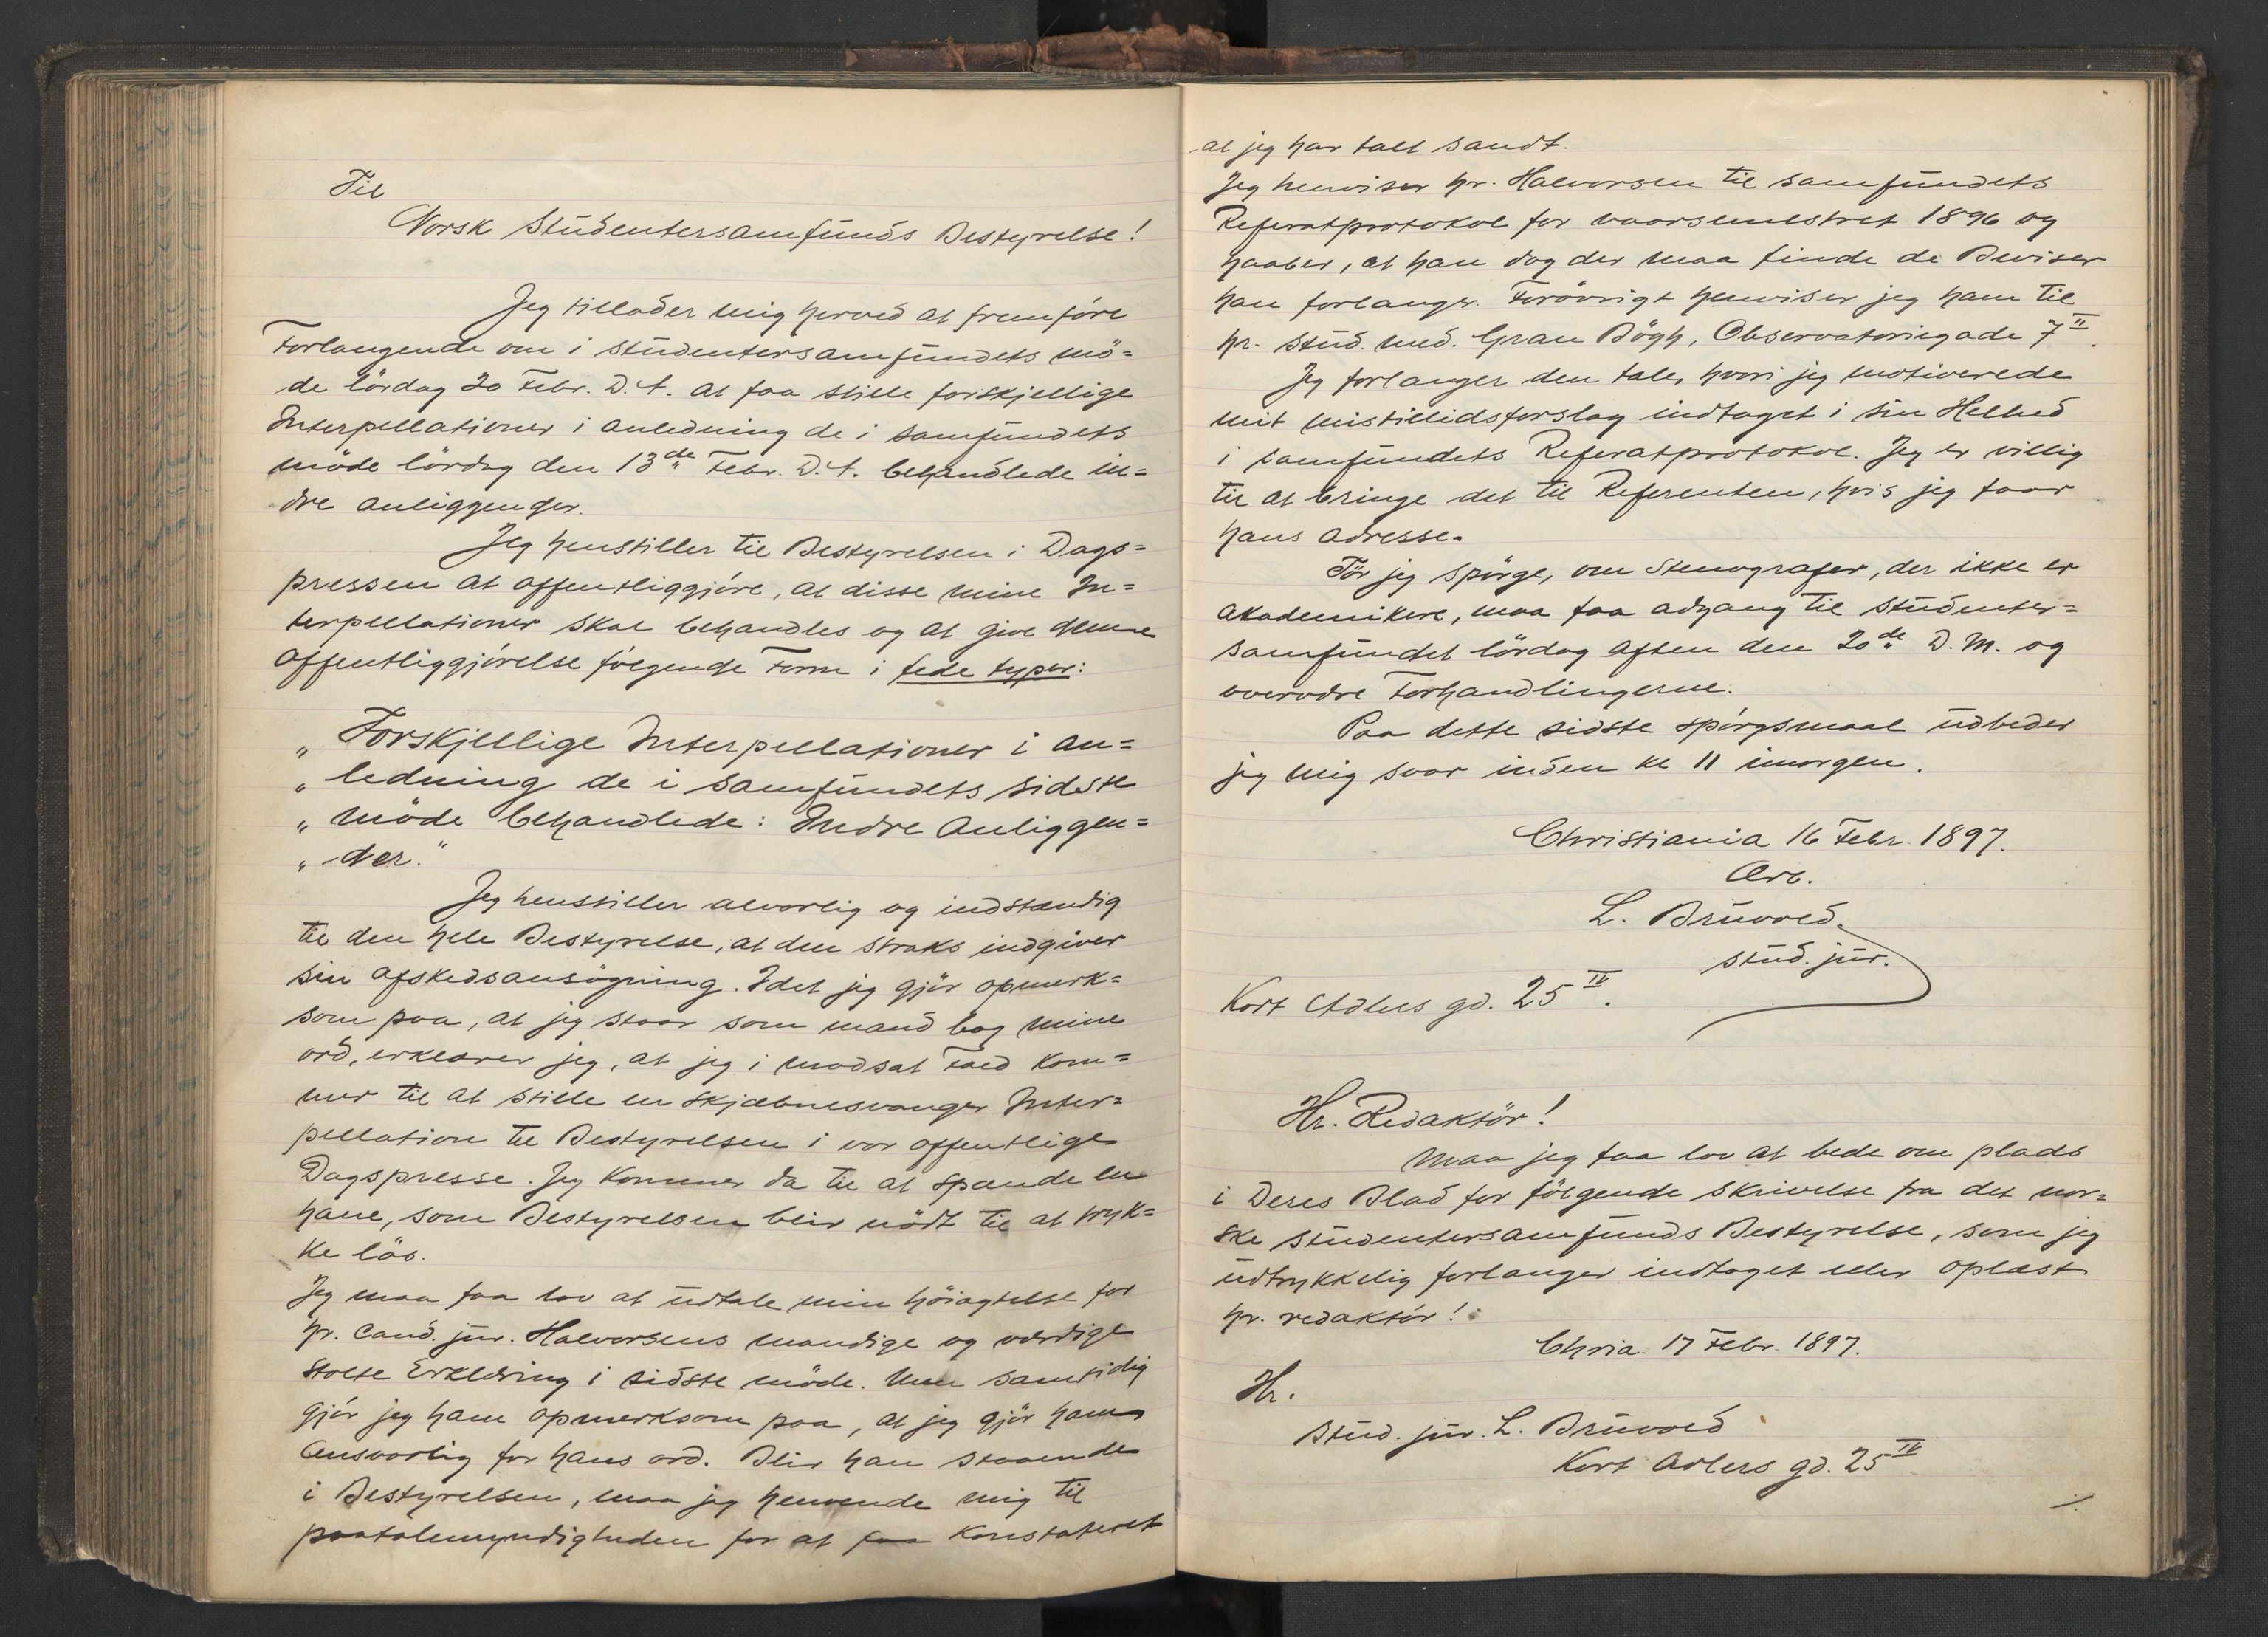 Til
Norsk Studentersamfunds Bestyrelse!
Jeg tillader mig herved at fremföre
Forlangende om i studentersamfundets mö=
de lördag 20 Febr. D. A. at faa stille forskjellige
Interpellationer i anledning de i samfundets
möde lördag den 13de Febr. D. A. behandlede in=
dre anliggender.
Jeg henstiller til Bestyrelsen i Dags=
pressen at offentliggjöre, at disse mine In=
terpellationer skal behandles og at give denne
offentliggjörelse fölgende Form i fede typer:
„ Forskjellige Interpellationer i an=
„ ledning de i samfundets sidste
„ möde behandlede: Indre Anliggen=
„ der."
Jeg henstiller alvorlig og indstændig
til den hele Bestyrelse, at den straks indgiver
sin afskedsansögning. Idet jeg gjör opmerk=
som paa, at jeg staar som mand bag mine
ord, erklærer jeg, at jeg i modsat Fald kom=
mer til at stille en skjæbnesvanger Inter=
pellation til Bestyrelsen i vor offentlige
Dagspresse. Jeg kommer da til at spænde en
hane, som Bestyrelsen blir nödt til at tryk=
ke lös.
Jeg maa faa lov at udtale min höiagtelse for
hr. Cand. jur. Halvorsens mandige og værdige
stolte Erklæring i sidste möde. Men samtidig
gjör jeg ham opmerksom paa, at jeg gjör ham
ansvarlig for hans ord. Blir han staaende
i Bestyrelsen, maa jeg henvende mig til
paatalemyndigheden for at faa konstateret
at jeg har talt sandt.
Jeg henviser hr. Halvorsen til samfundets
Referatprotokol for vaarsemestret 1896 og
haaber, at han dog der maa finde de Beviser
han forlanger. Forövrigt henviser jeg ham til
hr. stud. med. Gran Bögh, Observatoriegade 7 II.
Jeg forlanger den tale, hvori jeg motiverede
mit mistillidsforslag indtaget i sin Helhed
i samfundets Referatprotokol. Jeg er villig
til at bringe det til Referenten, hvis jeg faar
hans adresse.
Tör jeg spörge, om stenografer, der ikke er
akademikere, maa faa adgang til studenter=
samfundet lördag aften den 20de D. M. og
overvære Forhandlingerne.
Paa dette sidste spörgsmaal udbeder
jeg mig svar inden kl 11 imorgen.
Christiania 16 Febr. 1897.
Ærb.
L. Bruvold.
stud. jur.
Kort Adlers gd. 25 IV.
Hr. Redaktör!
Maa jeg faa lov at bede om plads
i Deres Blad for fölgende skrivelse fra det nor=
ske studentersamfunds Bestyrelse, som jeg
udtrykkelig forlanger indtaget eller oplæst
hr. redaktör!
Chria 17 Febr. 1897.
Hr.
stud. jur. L. Bruvold
Kort Adlers gd. 25 IV
./.